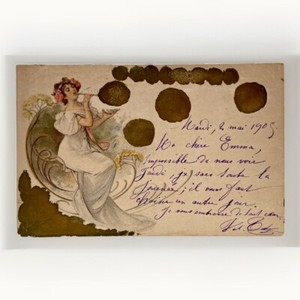 Mardi, 2 mai 1905
Ma chère Emma,
impossible de nous voir
Jeudi, je serai toute la
il nous faut
un autre jour.
Je vous embrasse de tout cœur